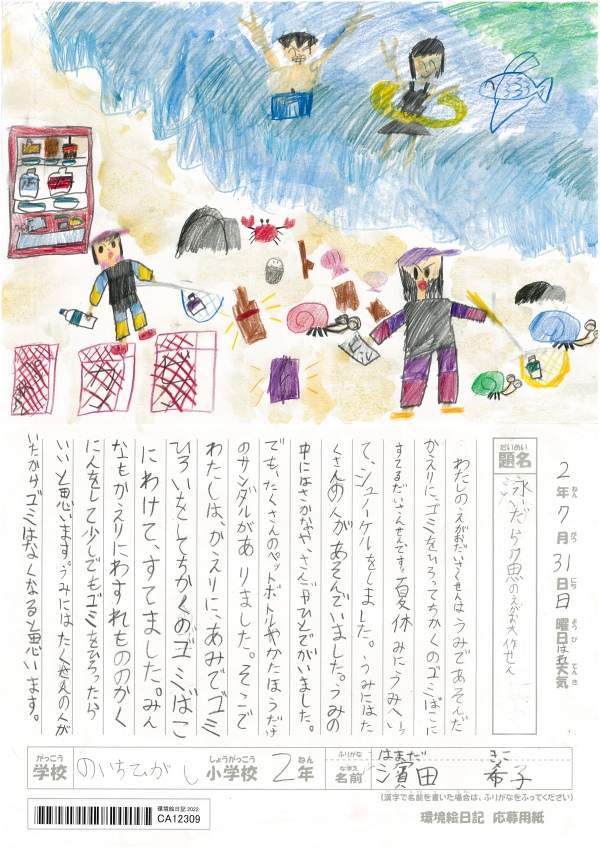 2年7月31日日曜日
ねん がつ にち ようび てんき
天気
だいめい
題名
のえがお大作せん
わたしのえがおだいさくせんは、うみであそんだ
かえりに、ゴミをひろってちかくのゴミばこに
すてるだいさんせんです。夏休みにうみへいっ
て、シュノーケルをしました。うみにはた
くさんの人があそんでいました。うみの
中にはさかなや、さんごやひとでがいました。
でも、たくさんのペットボトルやかたほうだけ
のサンダルがありました。そこで
わたしは、かえりに、あみでゴミ
ひろいをしてちかくのゴミばこ
にわけて、すてました。みん
なもかえりにわすれもののかく
にんをして少しでもゴミをひろったら
いいと思います。うみにはたくさんの人が
いたからゴミはなくなると思います。
がっこう しょうがっこう ねん
学校 のいちひがし小学校 2年
ふりがな はまだ きこ
なまえ
名前 濱田 希子
(漢字で名前を書いた場合は、ふりがなをふってください)
環境絵日記 2022
CA12309
環境絵日記 応募用紙